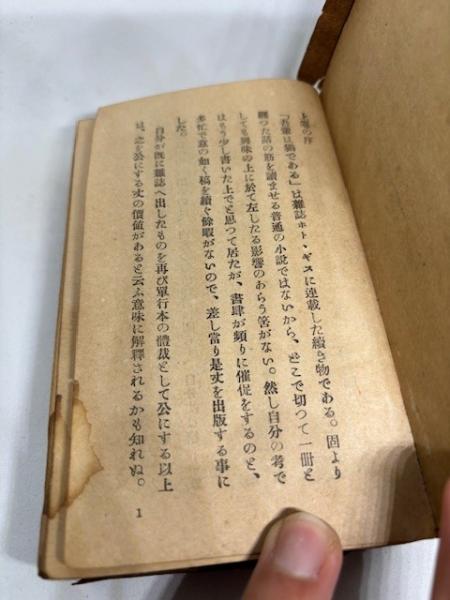 上篇の序
「吾輩は猫である」は雑誌ホトヽギスに連載した續き物である。固より
纏つた話の筋を讀ませる普通の小説ではないから、どこで切つて一冊と
しても興味の上に於て左したる影響のあらう筈がない。然し自分の考で
はもう少し書いた上でと思つて居たが、書肆が頻りに催促をするのと、
多忙で意の如く稿を續ぐ餘暇がないので、差し當り是丈を出版する事に
した。
自分が既に雑誌へ出したものを再び單行本の體裁として公にする以上
は、之を公にする丈の價値があると云ふ意味に解釋されるかも知れぬ。
1